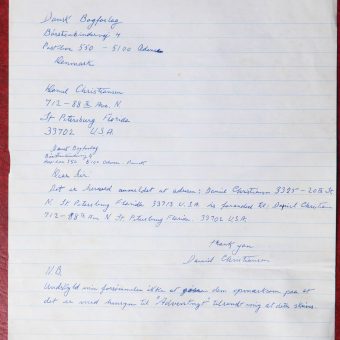 Dansk Bogforlag
Børstenbindervej 4
Postbox 550 - 5100 Odense
Denmark
Daniel Christiansen
712 - 88th Ave. N
St Petersburg Florida
33702 U.S.A.
Dansk Bogforlag
Børstenbindervej 4
550 5100 Odense - Danmark
Dear Sir
Det er herved anmeldet at adressen: Daniel Christiansen 8395 - 20th St
N. St Petersburg Florida 33713 U.S.A. is forwarded til: Daniel Christiansen
712 - 88th Ave N St. Petersburg Florida. 33702 U.S.A.
Thank you
Daniel Christiansen
N.B.
Undskyld min forsømmelse ikke at gøre dem opmærksom paa at
det er med hensyn til "Advertising" tilsendt mig at dette